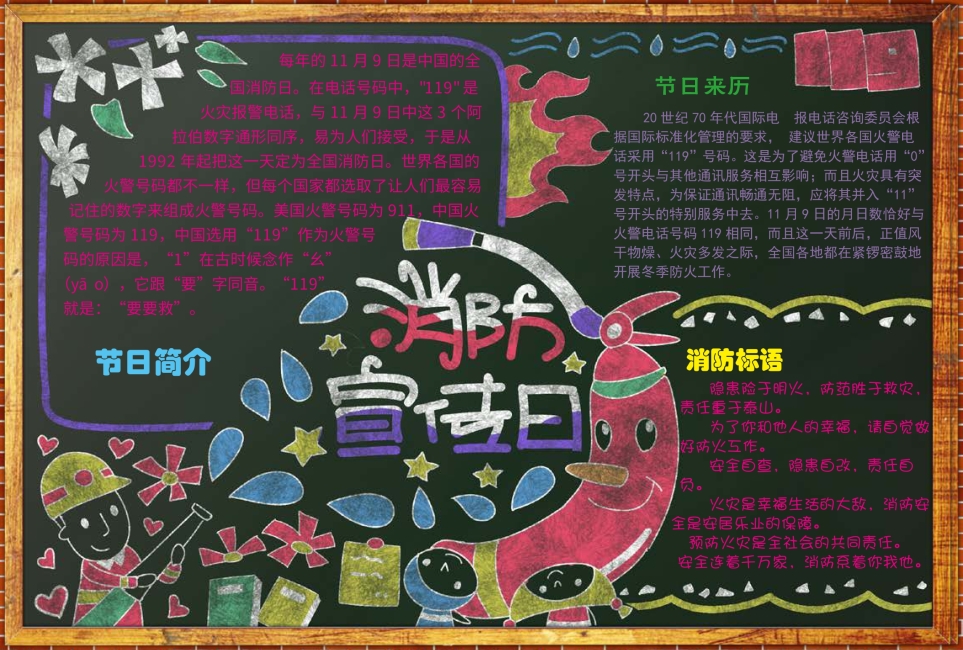 每年的 11 月 9 日是中国的全
国消防日。在电话号码中，"119" 是
火灾报警电话，与 11 月 9 日中这 3 个阿
拉伯数字通形同序，易为人们接受，于是从
1992 年起把这一天定为全国消防日。世界各国的
火警号码都不一样，但每个国家都选取了让人们最容易
记住的数字来组成火警号码。美国火警号码为 911，中国火
警号码为 119，中国选用“119”作为火警号
码的原因是，“1”在古时候念作“幺”
(yāo)，它跟“要”字同音。“119”
就是：“要要救”。
节日简介
消防
宣传日
119
节日来历
20 世纪 70 年代国际电　报电话咨询委员会根
据国际标准化管理的要求，　建议世界各国火警电
话采用“119”号码。这是为了避免火警电话用“0”
号开头与其他通讯服务相互影响；而且火灾具有突
发特点，为保证通讯畅通无阻，应将其并入“11”
号开头的特别服务中去。11 月 9 日的月日数恰好与
火警电话号码 119 相同，而且这一天前后，正值风
干物燥、火灾多发之际，全国各地都在紧锣密鼓地
开展冬季防火工作。
消防标语
隐患险于明火，防范胜于救灾，
责任重于泰山。
为了你和他人的幸福，请自觉做
好防火工作。
安全自查，隐患自改，责任自
负。
火灾是幸福生活的大敌，消防安
全是安居乐业的保障。
预防火灾是全社会的共同责任。
安全连着千万家，消防系着你我他。